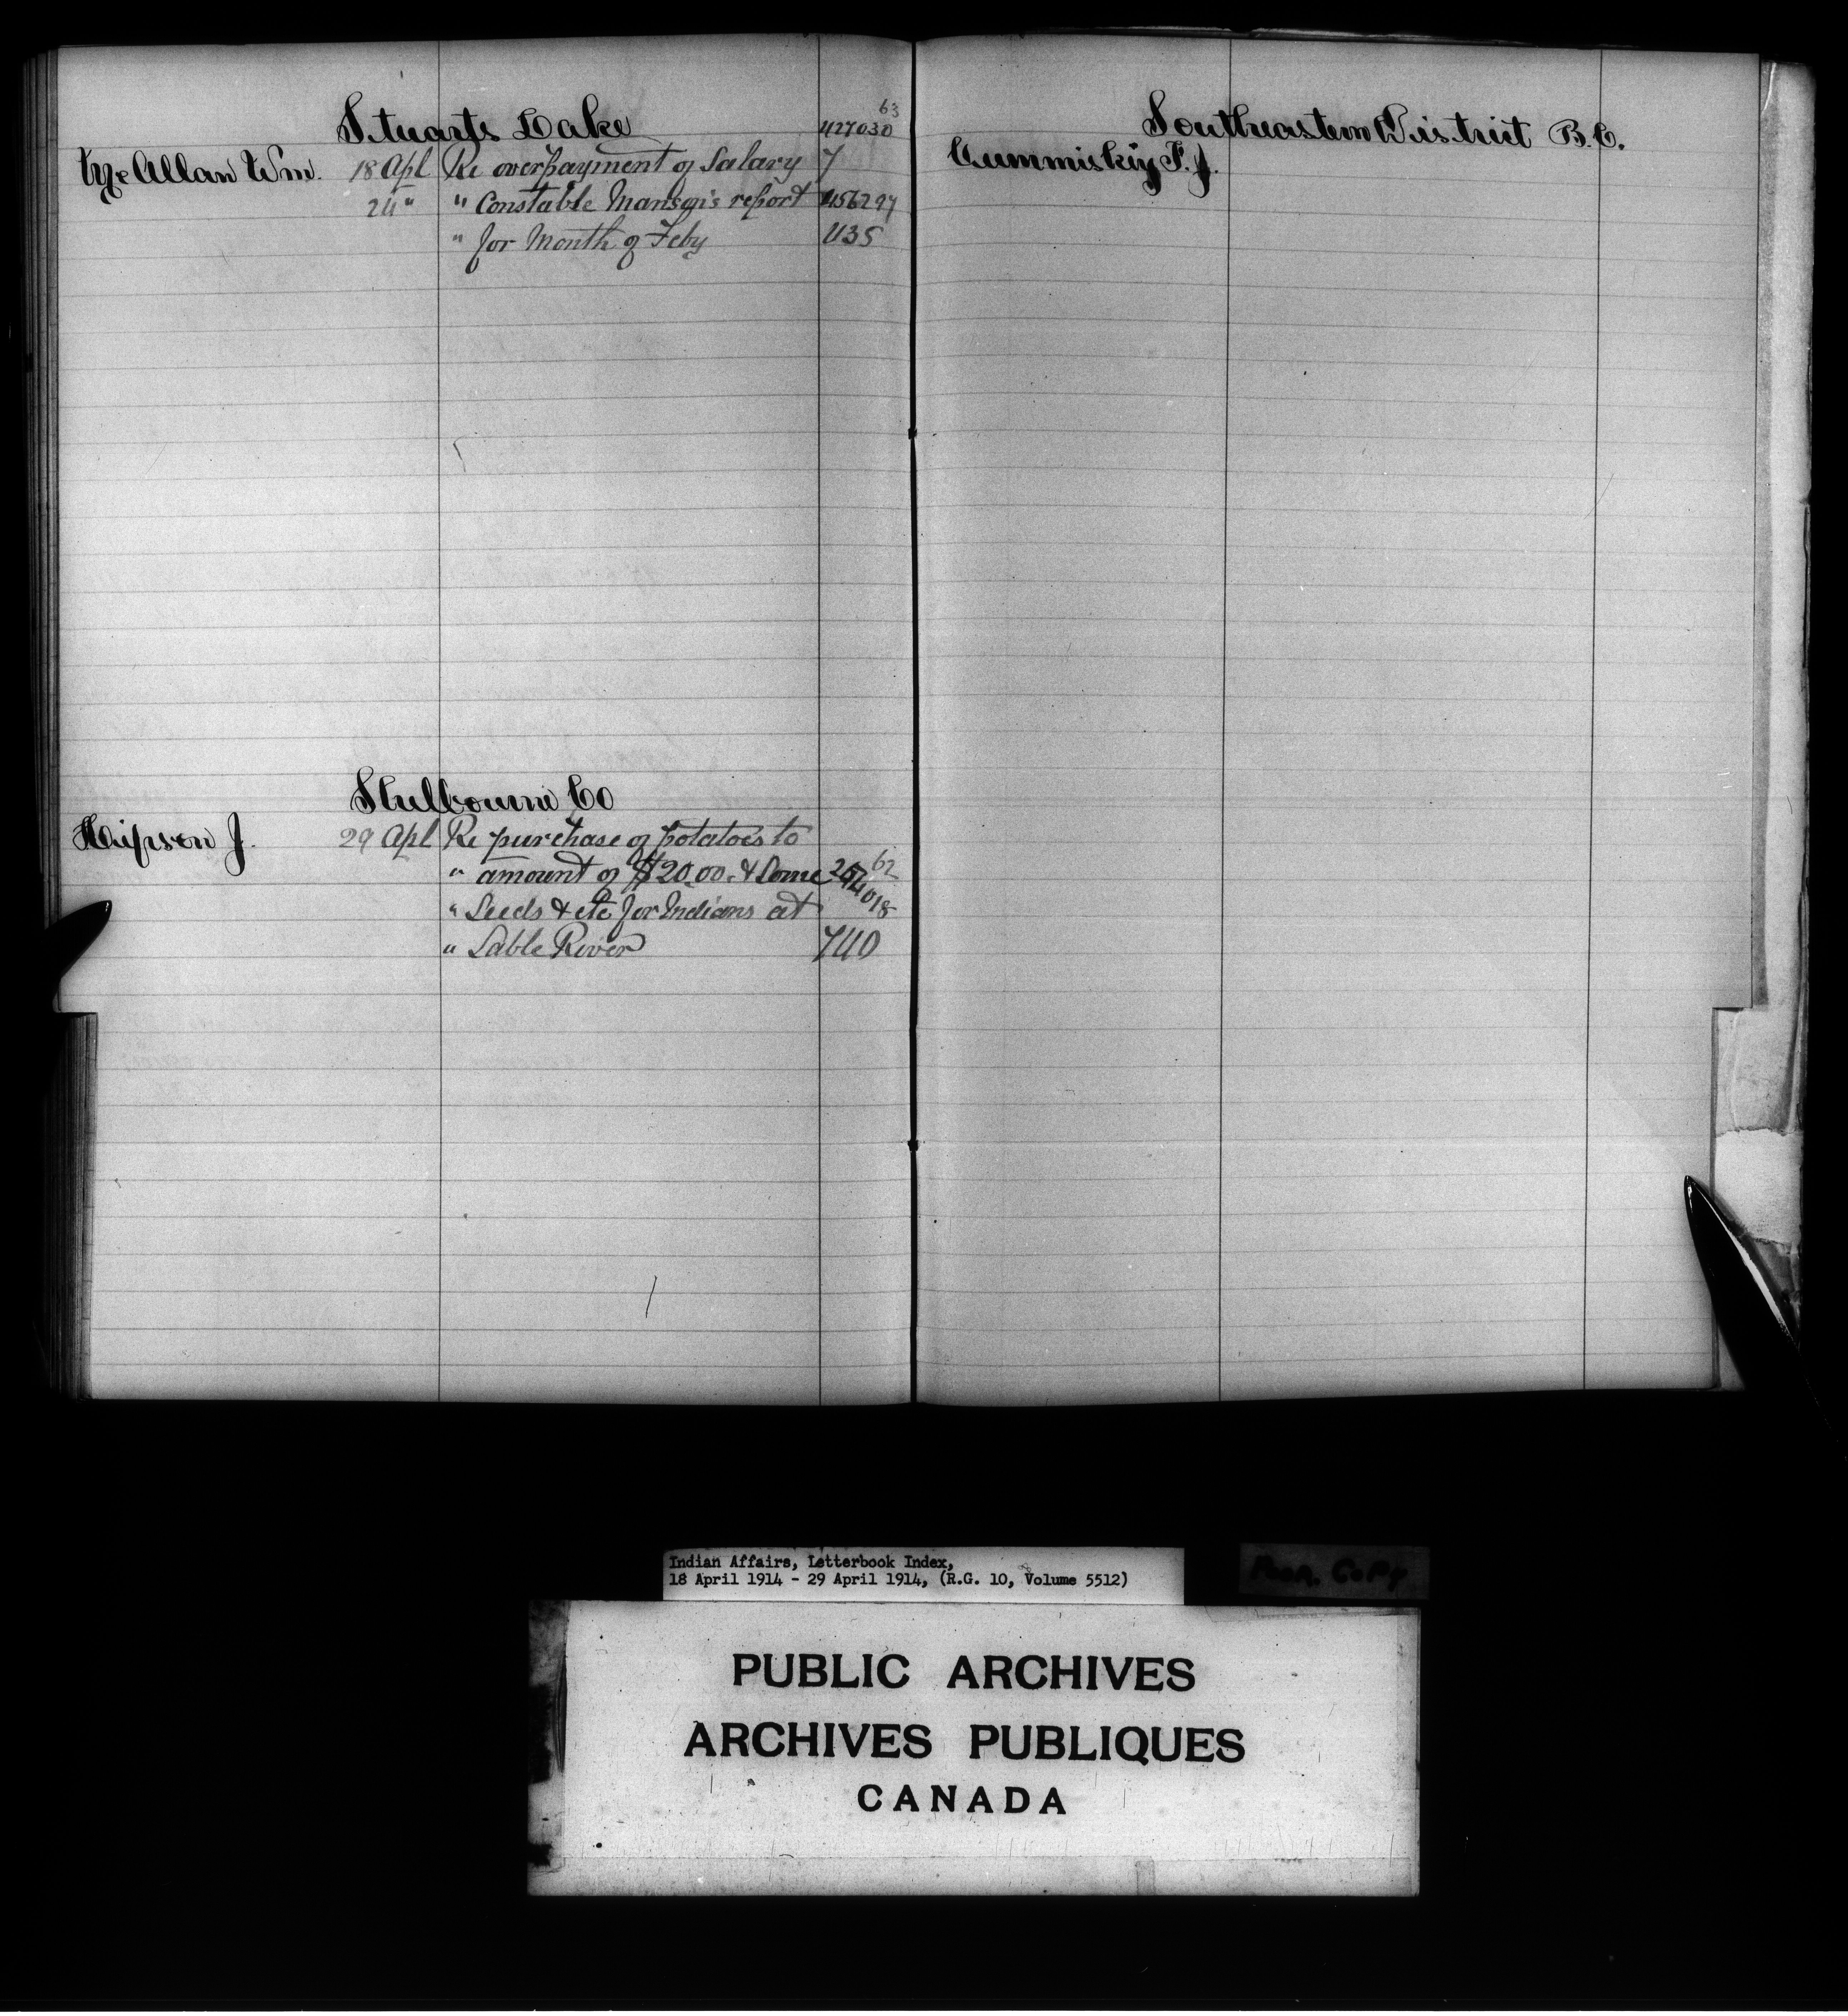 Stuarts Lake
63
427030
McAllan Wm. 18 Apl Re overpayment of Salary 7
24 " " Constable Manson's report 456297
" for Month of Feby 435
Shelbourne Co
Hipson J. 29 Apl Re purchase of potatoes to
" amount of $20.00. & Some 62
" Seeds & etc for Indians at
" Sable River 740
Southeastern District B.C.
Cummiskey F. J.
Indian Affairs, Letterbook Index,
18 April 1914 - 29 April 1914, (R.G. 10, Volume 5512)
POOR COPY
PUBLIC ARCHIVES
ARCHIVES PUBLIQUES
CANADA